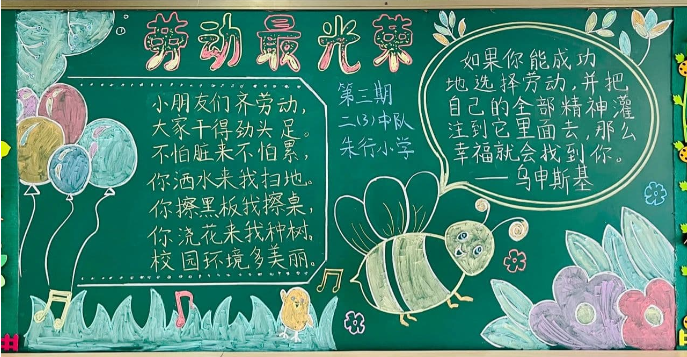 劳动最光荣
小朋友们齐劳动，
大家干得劲头足。
不怕脏来不怕累，
你洒水来我扫地。
你擦黑板我擦桌，
你浇花来我种树。
校园环境多美丽。
第三期
二(3)中队
朱行小学
如果你能成功
地选择劳动，并把
自己的全部精神灌
注到它里面去，那么
幸福就会找到你。
——乌申斯基